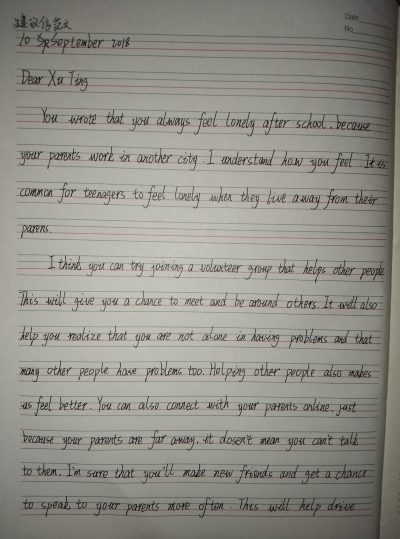 建议信范文
Date
No
10 September 2018
Dear Xu Ting
You wrote that you always feel lonely after school, because
your parents work in another city. I understand how you feel. It is
common for teenagers to feel lonely when they live away from their
parens.
I think you can try joining a volunteer group that helps other people
This will give you a chance to meet and be around others. It will also
help you realize that you are not alone in having problems and that
many other people have problems too. Helping other people also makes
us feel better. You can also connect with your parents online. just
because your parents are far away, it dosen't mean you can't talk
to them. I'm sure that you'll make new friends and get a chance
to speak to your parents more often. This will help drive